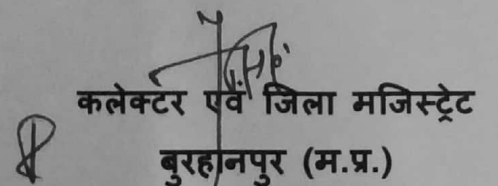 कलेक्टर एवं जिला मजिस्ट्रेट
बुरहानपुर (म.प्र.)